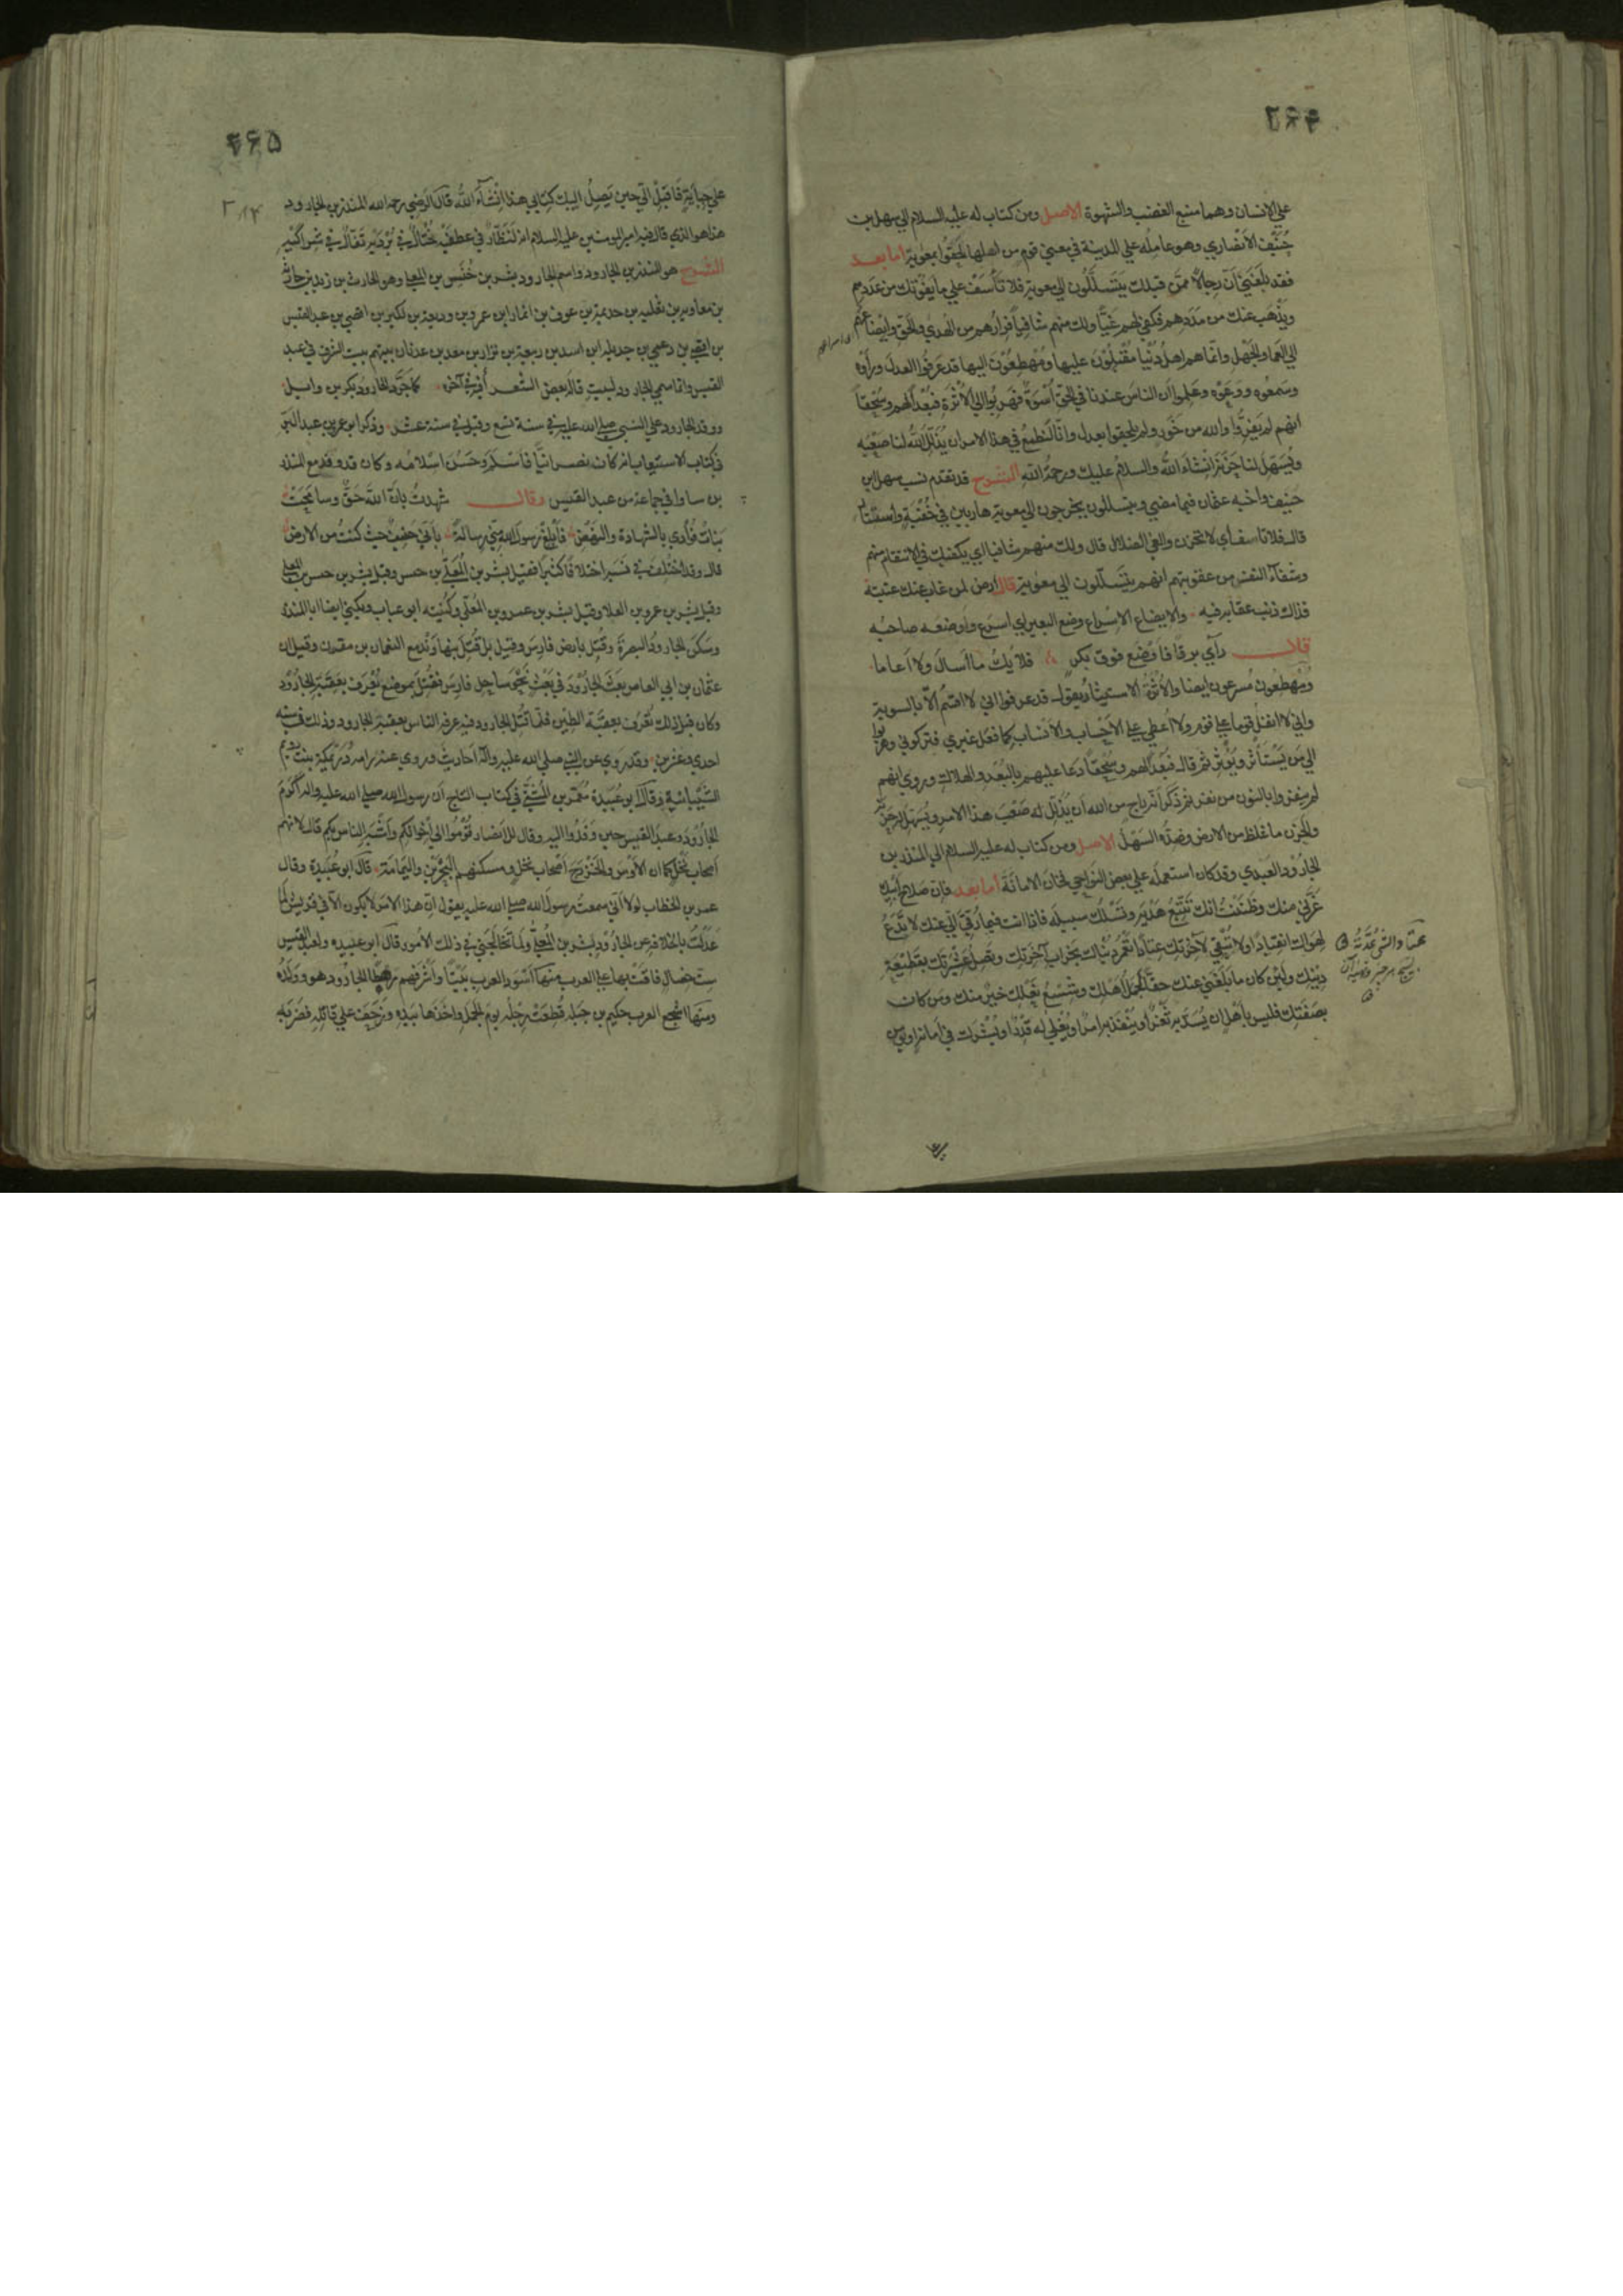 ۴۶۴
علي الانسان وهما منبع الغضب والشهوة الاصل ومن كتاب له عليه السلام الي سهل بن
حُنَيف الانصاري وهو عامله علي المدينة في معني قوم من اهلها لحقوا بمعوية اما بعد
فقد بلغني اَنّ رجالاً ممن قبلك يتسللون الي معوية فلا تأسف علي ما يفوتك من عددهم
ويذهب عنك من مددهم فكفي لهم غيّاً ولك منهم شافياً فرارهم من الهدي والحق وايضاعهم
الي العما والجهل وانما هم اهل دُنيا مقبلون عليها ومُهطعون اليها قد عرفوا العدل ورأوه
وسمعوه ووعوه وعلموا ان الناس عندنا في الحق اُسوة فهربوا الي الاثرة فبُعداً لهم وسُحقاً
انهم لم يفروا والله من جَور ولم يلحقوا بعدل وانا لنطمع في هذا الامر ان يذلل الله لنا صعبه
ويُسهّل لنا حَزنه انشاء الله والسلام عليك ورحمة الله الشرح قد تقدم نسب سهل بن
حنيف واخيه عثمان فيما مضي ويتسللون يخرجون الي معوية هاربين في خُفية واستتار
قال فلا تاسف أي لا تحزن والغي الضلال قال ولك منهم شافيا اي يكفيك في الانتقام منهم
وشفاء النفس من عقوبتهم انهم يتسللون الي معوية قال ارض لمن غاب عنك غيبته
فذاك ذنب عقابه فيه والايضاع الاسراع وضع البعير اي اسرع واوضعه صاحبه
قال رأي برقاً فاوضع فوق بكر فلا يك ما أسال ولا أعاما
ومُهطعون مُسرعون ايضا والاثرة الاستيثار يقول قد عرفوا اني لا اقسم الّا بالسوية
واني لا انفل قوما علي قوم ولا اُعطي علي الاحساب والانساب كما فعل غيري فتركوني وهربوا
الي من يستأثر ويُؤثر ثم قال فبُعداً لهم وسُحقاً دعا عليهم بالبُعد والهلاك وروي انهم
لم ينفروا بالنون من نفر ثم ذكر انه راج من الله ان يُذلّل له صعب هذا الامر ويُسهّل له حَزنه
والحزن ما غلظ من الارض وضده السهل الاصل ومن كتاب له عليه السلام الي المنذر بن
الجارود العبدي وقد كان استعمله علي بعض النواحي فخان الامانة اما بعد فان صلاح ابيك
غرّني منك وظننت انك تتبع هَديه وتسلك سبيله فاذا انت فيما رُقّي الي عنك لا تدع
لهواك انقيادا ولا تُبقي لآخرتك عتاداً تعمُر دنياك بخراب آخرتك وتصل عشيرتك بقطيعة
دينك ولئن كان ما بلغني عنك حقاً لجمل اهلك وشسع نعلك خير منك ومن كان
بصفتك فليس بأهل ان يُسدّ به ثغر او ينفذ به امر او يُعلي له قدر او يُشرك في امانة او يؤمن
۴۶۵
علي جباية فاقبل الي حين يصل اليك كتابي هذا انشاء الله قال الرضي رحمه الله المنذر بن الجارود
هذا هو الذي قال فيه امير المومنين عليه السلام انه لنظّار في عطفيه مُختال في بُرديه تفّال في شراكيه
الشرح هو المنذر بن الجارود واسم الجارود بشر بن خُنيس بن المعلي وهو الحارث بن زيد بن حارثة
بن معاويه بن ثعلبه بن جذيمة بن عوف بن انمار بن عمرو بن وديعة بن لكيز بن افصي بن عبد القيس
بن افصي بن دعمي بن جديله ابن اسد بن ربيعة بن نزار بن معد بن عدنان بيتهم بيت الشرف في عبد
القيس وانما سمي الجارود لبيت قاله بعض الشعراء في آخره كما جرّد الجارود بكر بن وايل
ووفد الجارود علي النبي صلي الله عليه في سنة تسع وقيل في سنة عشر وذكر ابو عمر بن عبد البر
في كتاب الاستيعاب انه كان نصرانيّا فاسلم وحسُن اسلامه وكان قد وفد مع المنذر
بن ساوا في جماعة من عبد القيس وقال شهدتُ بانّ الله حقّ وسامحت
بنات فؤادي بالشهادة والنهض فأبلغ رسول الله مني رسالة بأني حنيف حيث كنت من الارض
قال وقد اختلف في نسبه اختلافاً كثيرا فقيل بشر بن المعلّي بن حنس وقيل بشر بن حنس بن المعلي
وقيل بشر بن عمرو بن العلا وقيل بشر بن عمرو بن المعلّي وكُنيته ابو عتاب ويكني ايضا ابا المنذر
وسكن الجارود البصرة وقتل بارض فارس وقيل بل قُتل بنهاوند مع النعمان بن مقرن وقيل ان
عثمان بن ابي العاص بعث الجارود في بعث نحو ساحل فارس فقتل بموضع يُعرف بعقبة الجارود
وكان قبل ذلك تعرف بعقبة الطين فلما قُتل الجارود فيه عرفه الناس بعقبة الجارود وذلك في سنه
احدي وعشرين وقد روي عن النبي صلي الله عليه وآله احاديث وروي عنه وامه دَرْمَكَة بنت رويم
الشيبانية وقال ابو عُبيدة معمّر بن المثنّي في كتاب التاج ان رسول الله صلي الله عليه واله اكرم
الجارود وعبد القيس حين وفدوا اليه وقال للانصار قوموا الي اخوانكم واشبه الناس بكم قال لانهم
اصحاب نخل كما ان الاوس والخزرج اصحاب نخل ومسكنهم البحرين واليمامة قال ابو عُبيدة وقال
عمر بن الخطاب لولا أني سمعت رسول الله صلي الله عليه يقول ان هذا الامر لا يكون الا في قريش لما
عدلتُ بالخلافة عن الجارود بشر بن المعلّي ولما تخالجني في ذلك الامور قال ابو عبيده ولعبد القيس
ست خصال فاقت بها علي العرب منها اسود العرب بيتا واشرفهم رهطا الجارود هو وولده
ومنها اشجع العرب حكيم بن جبله قُطعت رجله يوم الجمل واخذها بيده وزحف علي قاتله فضربه